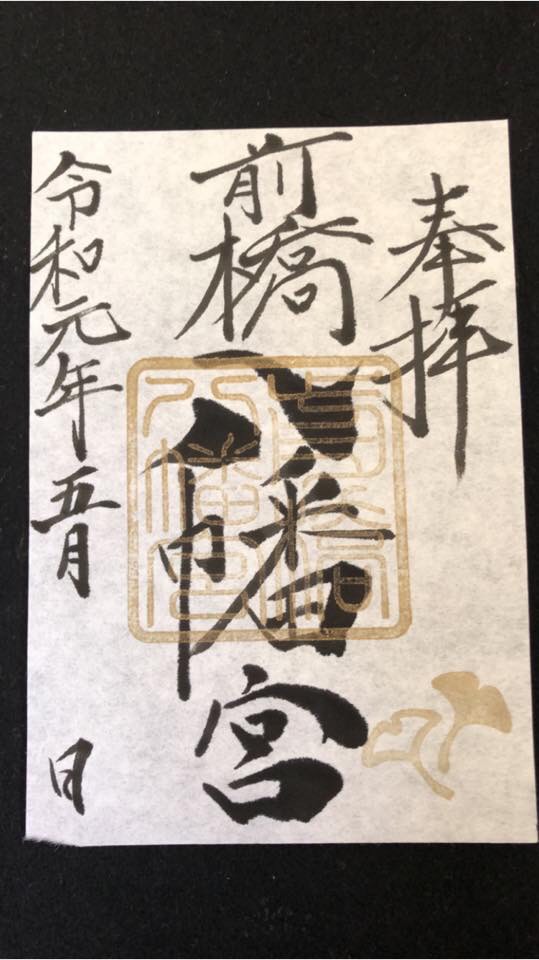 奉拝
前橋
八幡宮
令和元年五月 日
前橋
八幡宮